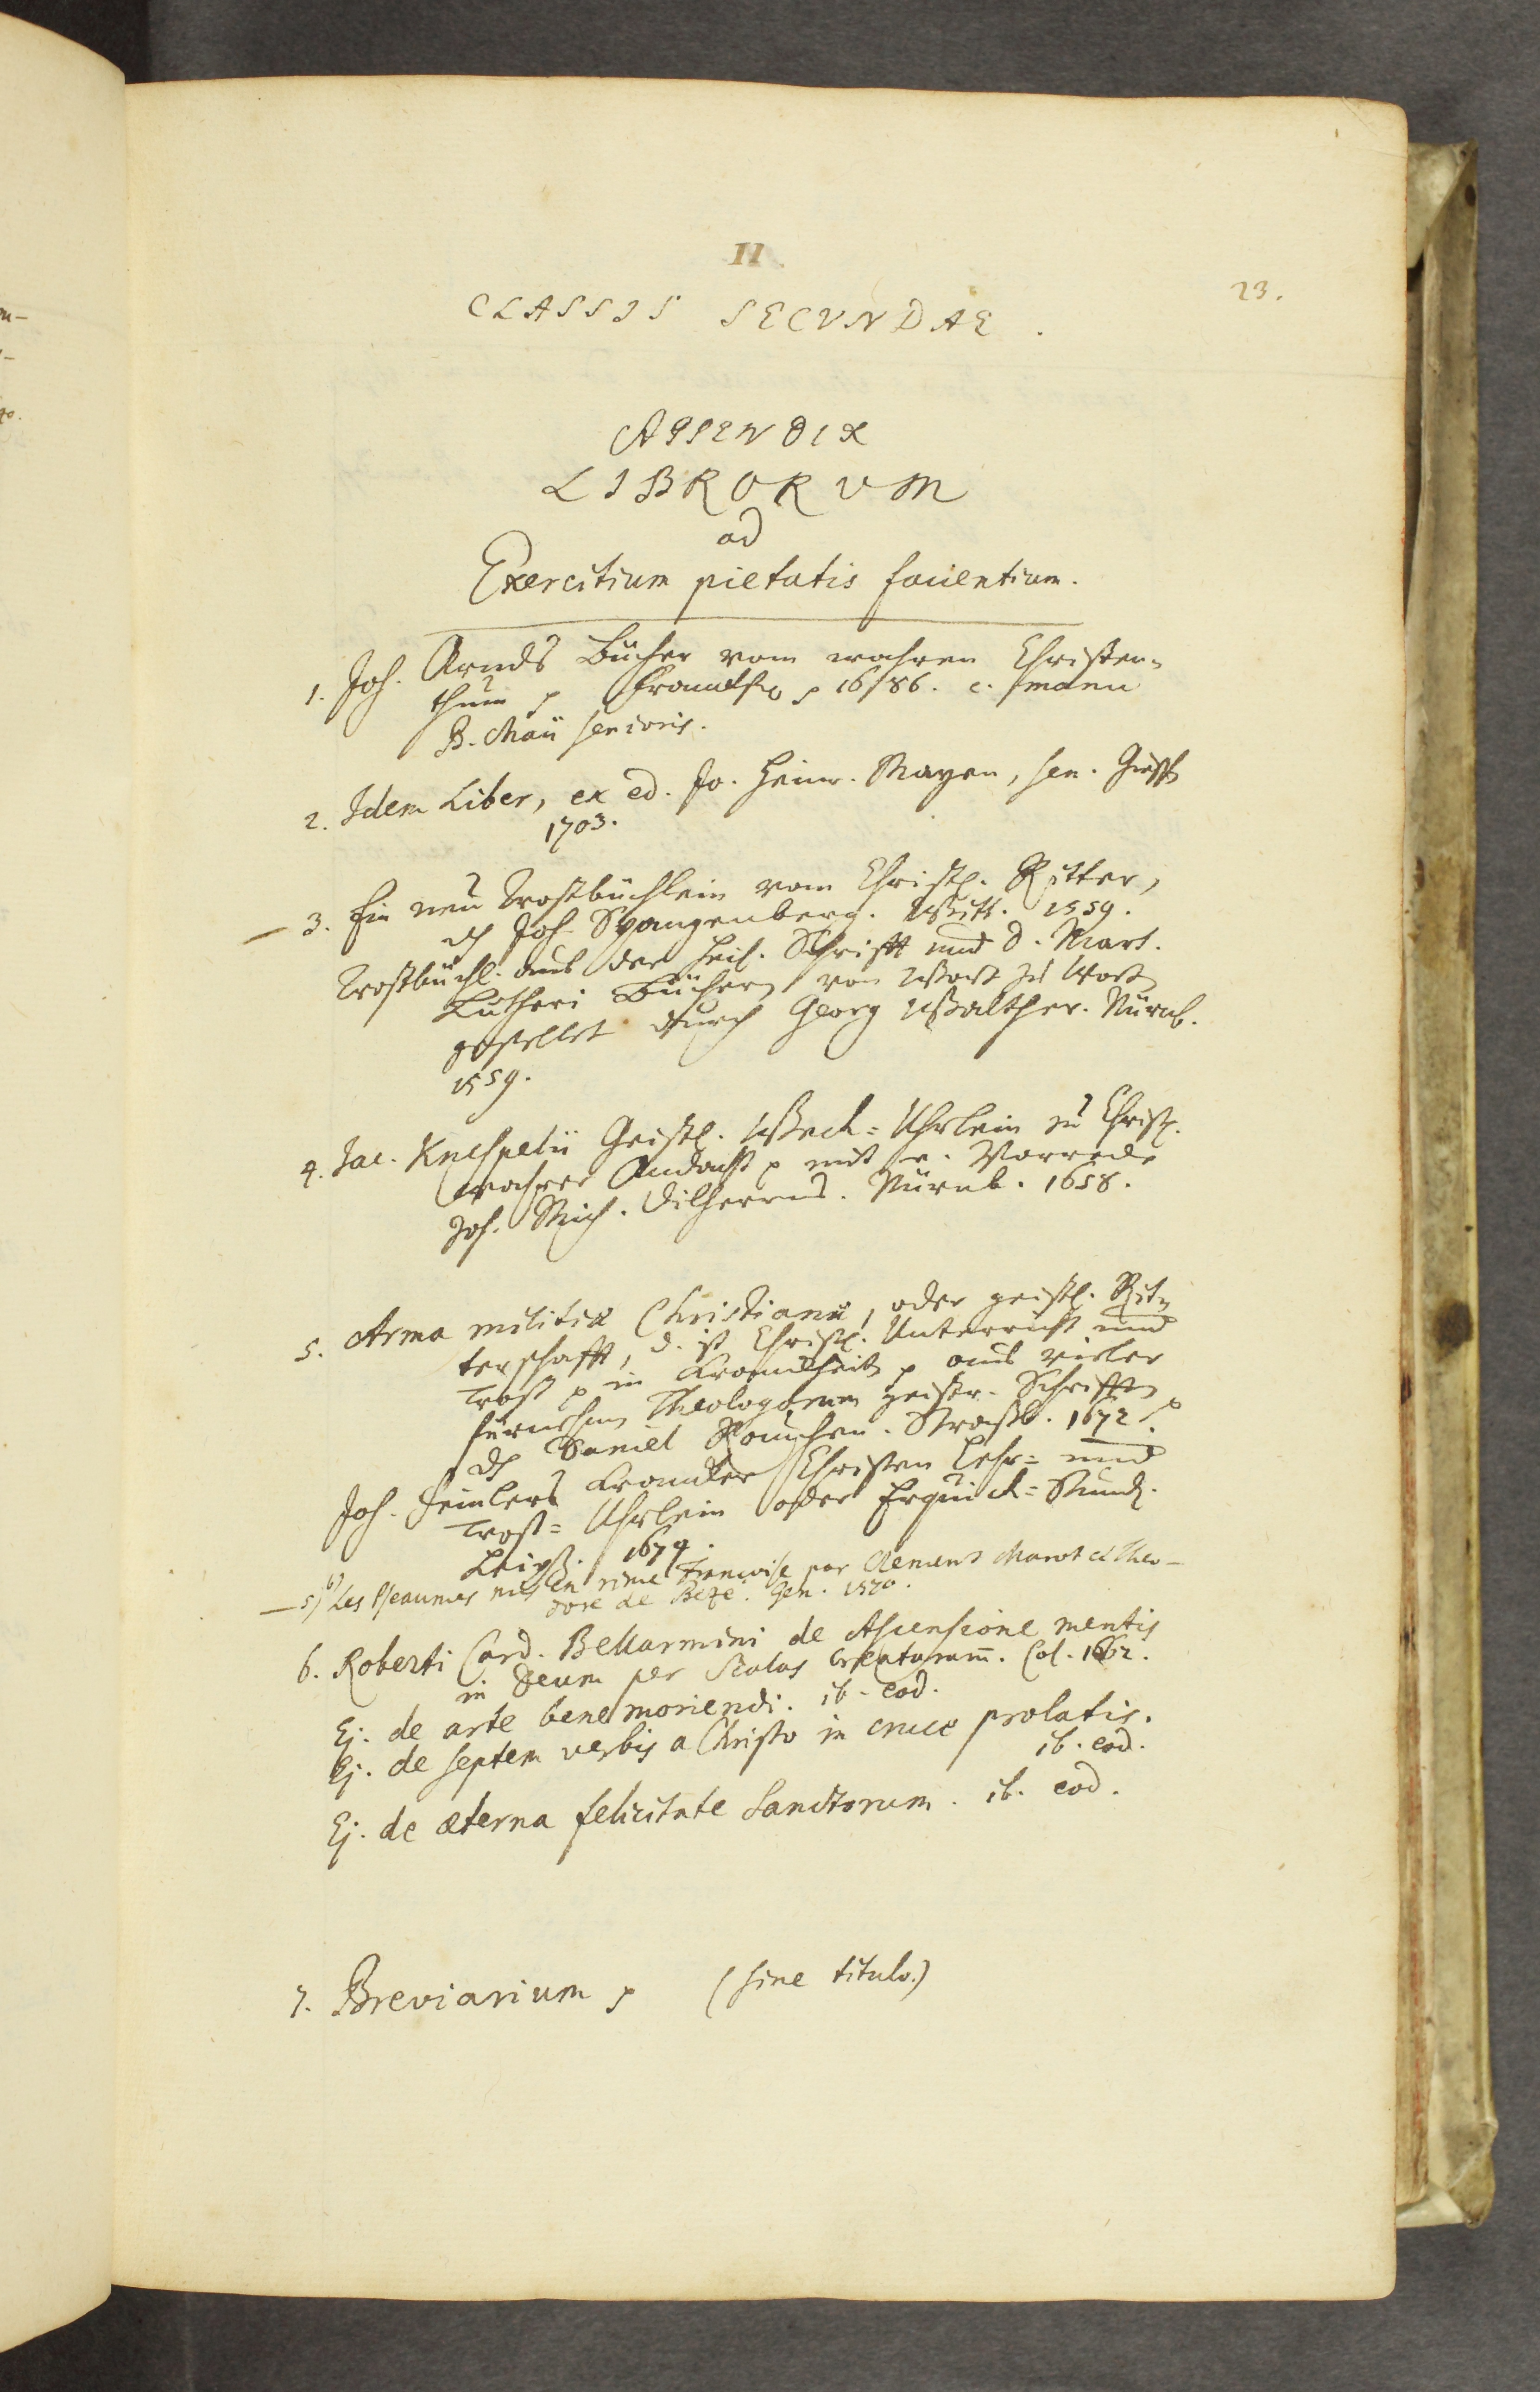 II.
23.
CLASSIS SECVNDAE.
APPENDIX
LIBRORVM
ad
Exercitium pietatis fauentium.
1. Joh. Arnds Bücher vom wahren Christen-
thum p Franckf. 1686. c. manu
B. Maii senioris.
2. Idem Liber, ex ed. Jo. Heinr. Mayen, sen. Giess.
1703.
3. Ein neu Trostbüchlein vom Christl. Ritter,
d. Joh. Spangenberg. Witt. 1559.
Trostbüchl. aus der Heil. Schrifft und D. Mart.
Lutheri Büchern von Wort zu Wort
gestellet durch Georg Walther. Nürnb.
1559.
4. Jac. Knespelii Geistl. Weck-Uhrlein zu Christl.
wahrer Andacht p mit e. Vorrede
Joh. Mich. Dilherrns. Nürnb. 1658.
5. Arma militiæ Christianæ, oder geistl. Rit-
terschafft, d. ist Christl. Unterricht und
Trost p in Kranckheit p aus vieler
fürnehm Theologorum geistr. Schrifften
d. Daniel Rauchen. Strasb. 1672.
Joh. Feinlers Krancker Christen Lehr- und
Trost-Uhrlein oder Erquick-Stund.
Leipz. 1679.
5) b) Les Pseaumes mis en rime Francoise par Clement Marot et Theo-
dore de Beze. Gen. 1570.
6. Roberti Card. Bellarmini de Ascensione mentis
in Deum per Scalas Creaturarum̄. Col. 1662.
Ej. de arte bene moriendi. ib. eod.
Ej. de septem verbis a Christo in cruce prolatis.
ib. eod.
Ej. de æterna felicitate Sanctorum. ib. eod.
7. Breviarium p (sine titulo.)